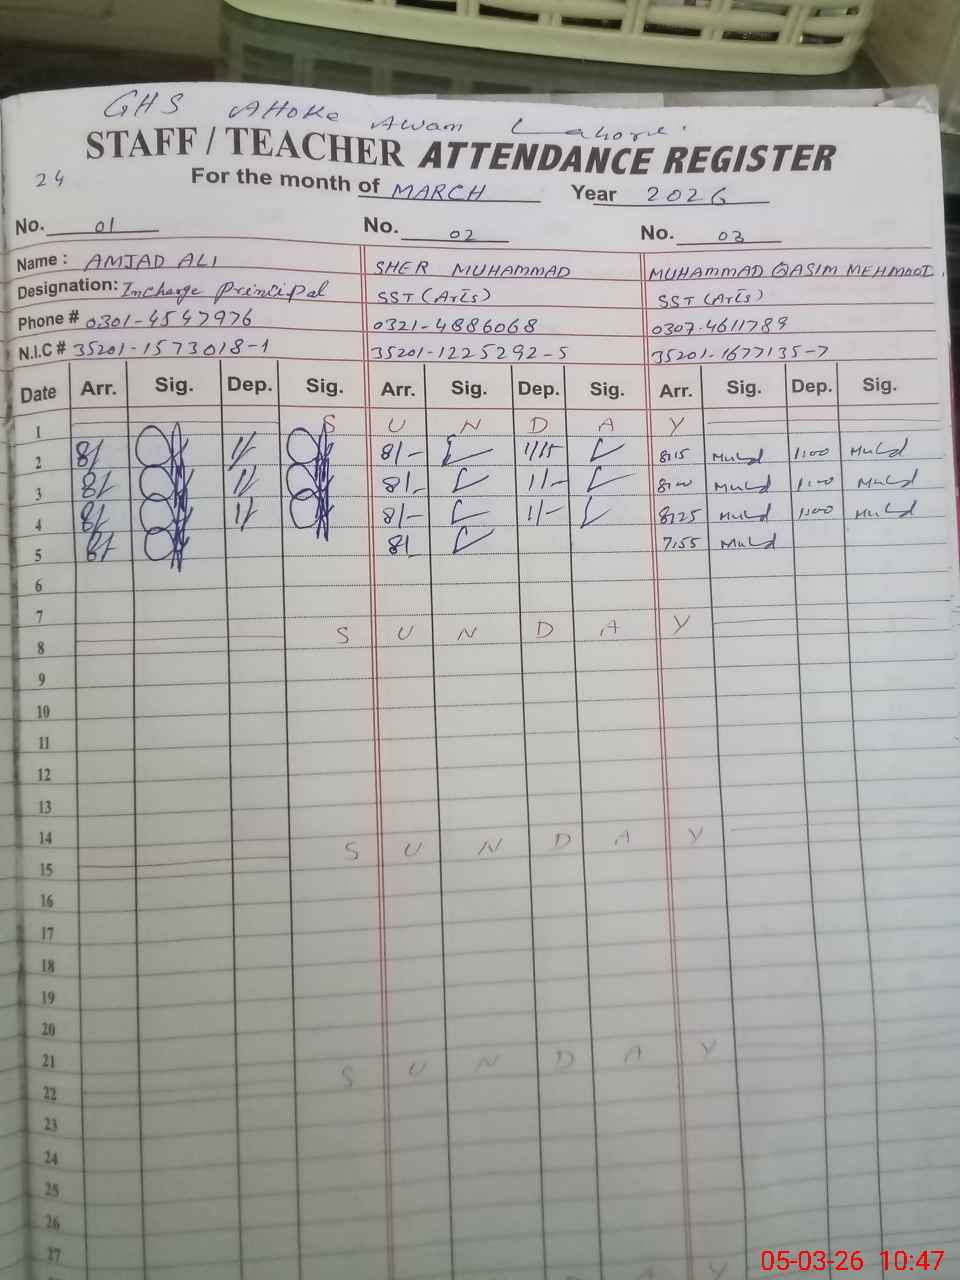 GHS AHOKE AWAN Lahore.
STAFF / TEACHER ATTENDANCE REGISTER
24 For the month of MARCH Year 2026
No. 01 No. 02 No. 03
Name : AMJAD ALI SHER MUHAMMAD MUHAMMAD QASIM MEHMOOD.
Designation: Incharge Principal SST (Arts) SST (Arts)
Phone # 0301-4547976 0321-4886068 0307-4611789
N.I.C # 35201-1573018-1 35201-1225292-5 35201-1677135-7
Date Arr. Sig. Dep. Sig. Arr. Sig. Dep. Sig. Arr. Sig. Dep. Sig.
1 S U N D A Y
2 8/ 1/ 8/- 1/15 8:15 1:00
3 8/ 1/ 8/- 1/- 8:00 1:00
4 8/ 1/ 8/- 1/- 8:25 1:00
5 8/ 8/ 7:55
6
7
8 S U N D A Y
9
10
11
12
13
14
15 S U N D A Y
16
17
18
19
20
21
22 S U N D A Y
23
24
25
26
27
D A Y
05-03-26 10:47